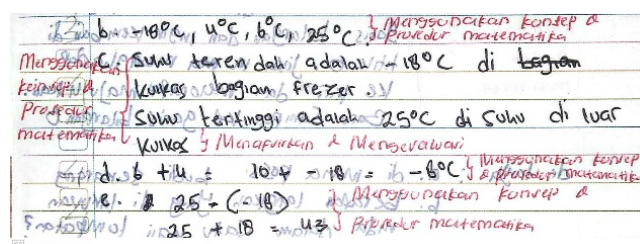 b. -18°C, 4°C, 6°C, 25°C. } Menggunakan konsep & Prosedur matematika
Menggunakan konsep & Prosedur matematika { c. Suhu terendah adalah -18°C di
kulkas bagian frezer.
Suhu tertinggi adalah 25°C di suhu di luar
kulkas } Menafsirkan & Mengevaluasi
d. 6 + 4 = 10 + -18 = -8°C } Menggunakan konsep & prosedur matematika
e. 25 - (-18) } Menggunakan konsep &
25 + 18 = 43 } Prosedur matematika